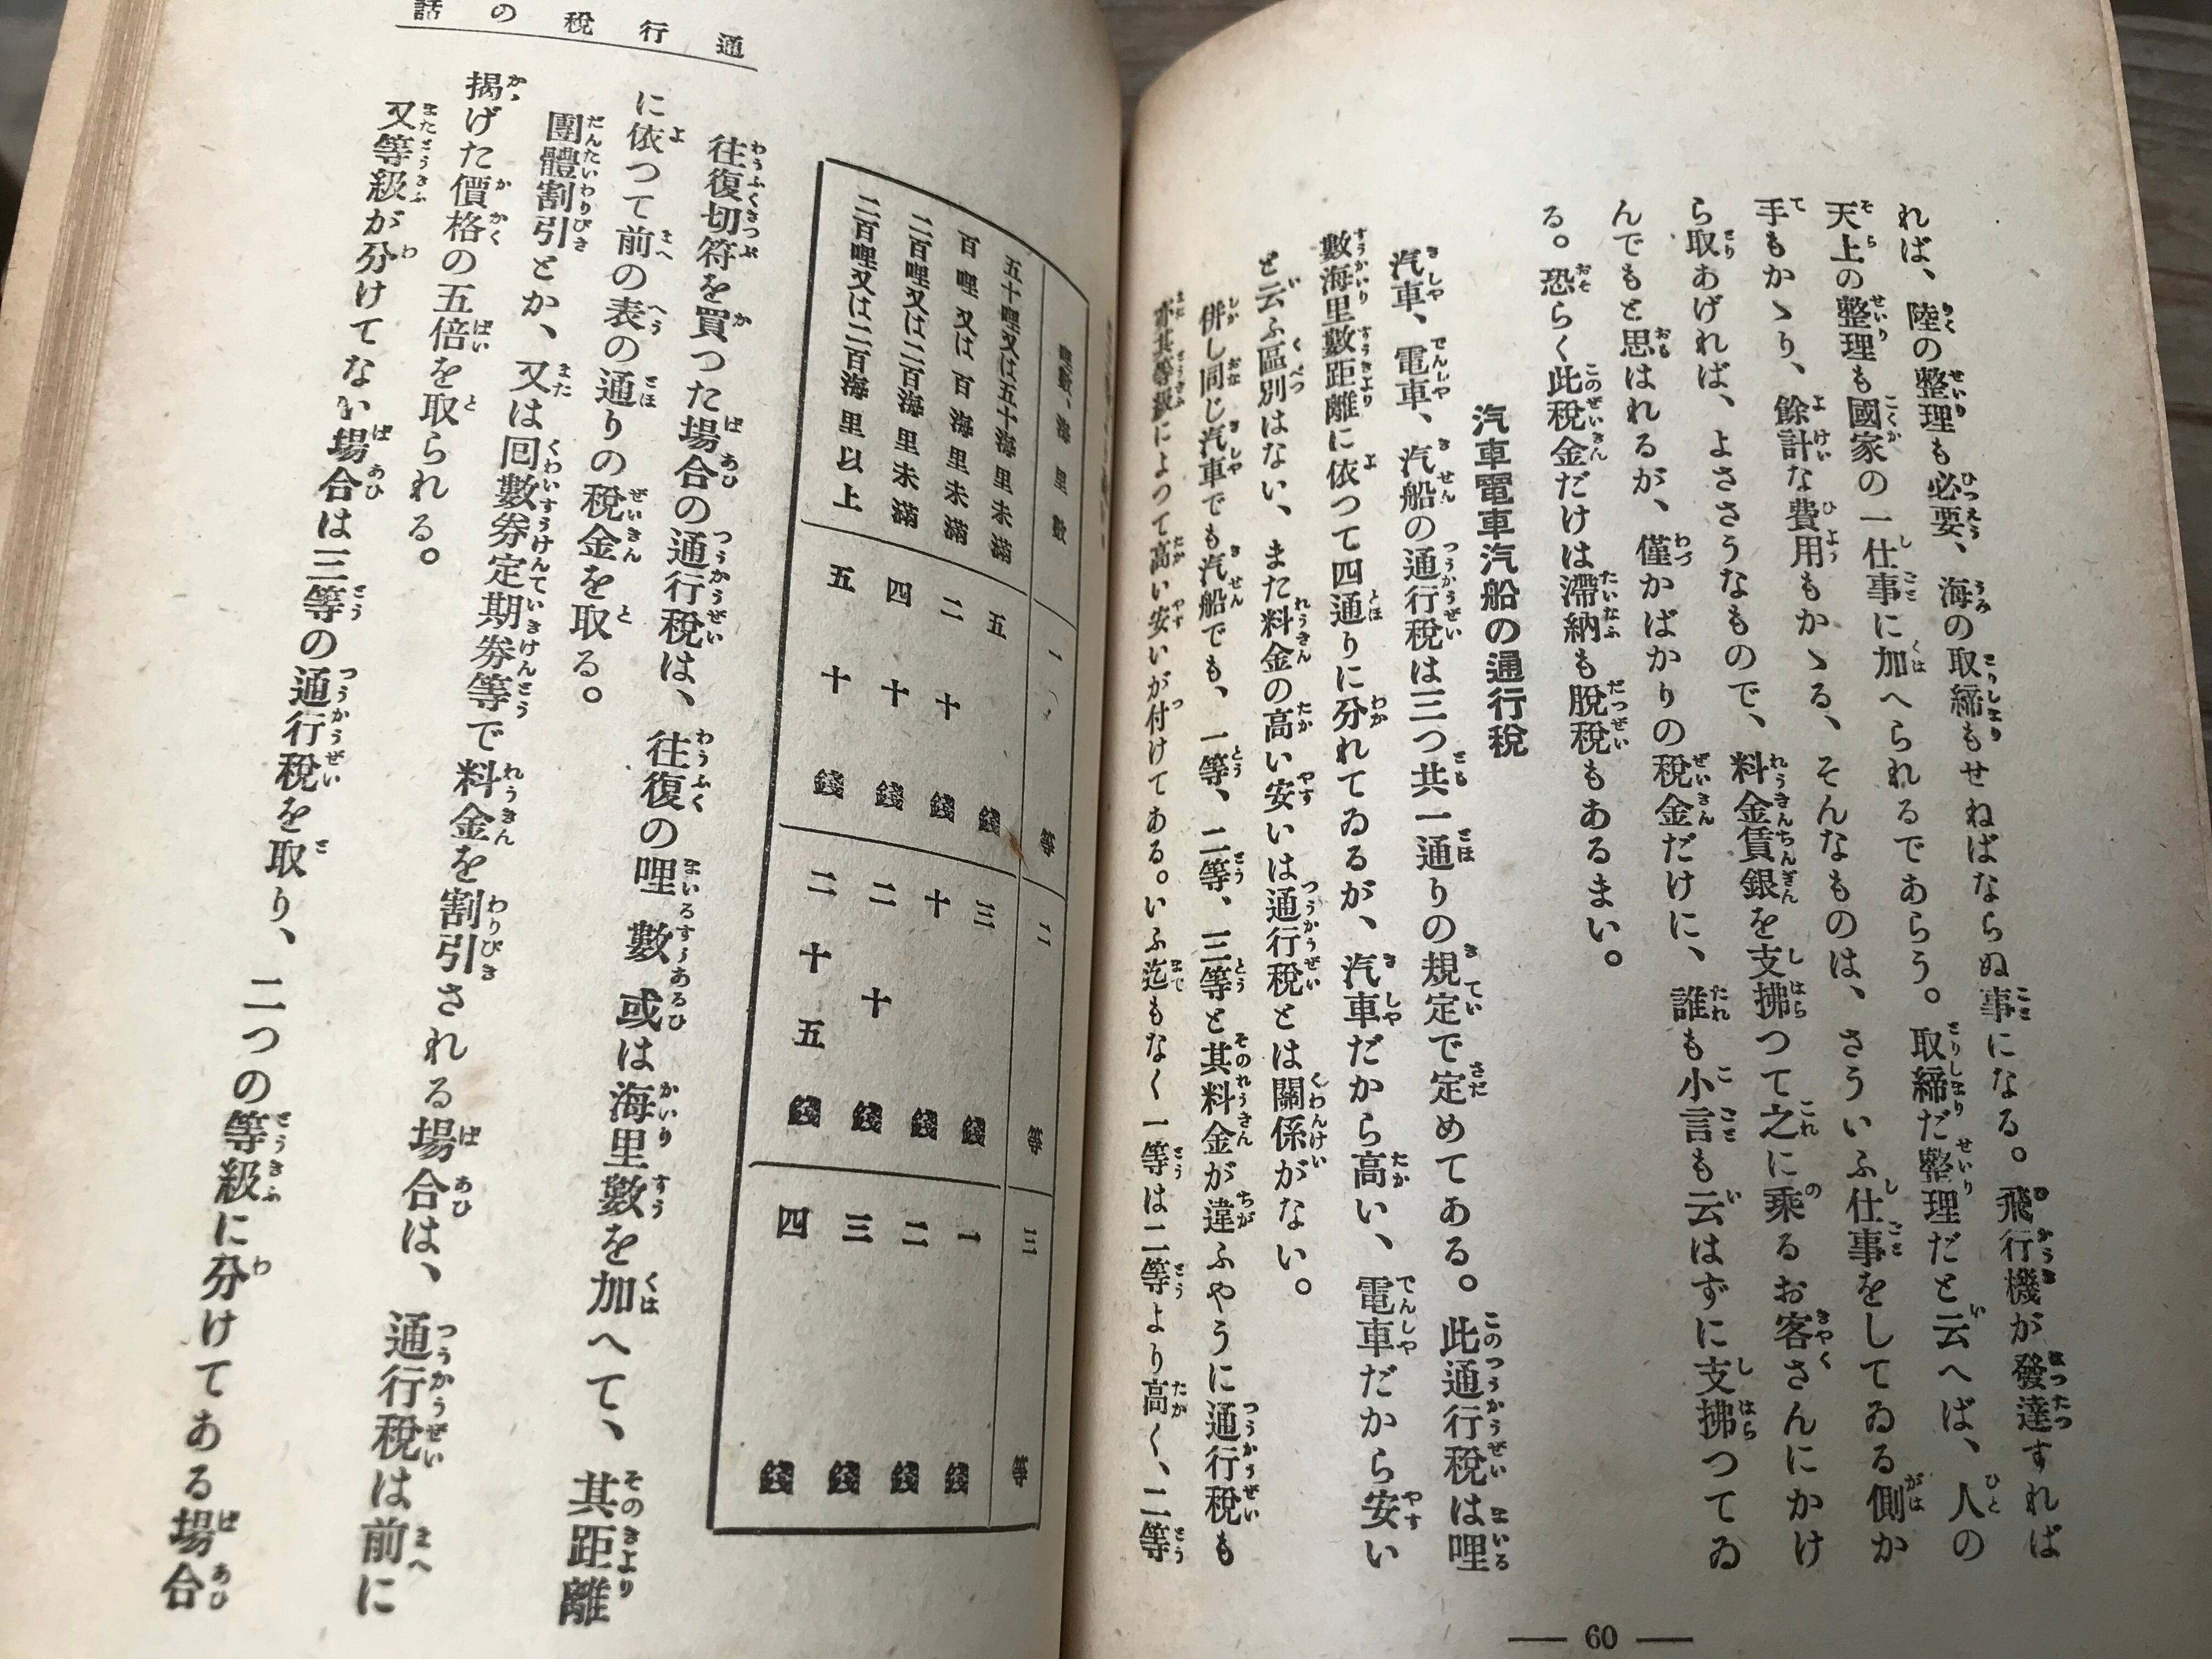 れば、陸の整理も必要、海の取締もせねばならぬ事になる。飛行機が發達すれば
天上の整理も國家の一仕事に加へられるであらう。取締だ整理だと云へば、人の
手もかゝり、餘計な費用もかゝる、そんなものは、さういふ仕事をしてゐる側か
ら取あげれば、よささうなもので、料金賃銀を支拂つて之に乘るお客さんにかけ
んでもと思はれるが、僅かばかりの稅金だけに、誰も小言も云はずに支拂つてゐ
る。恐らく此稅金だけは滯納も脫稅もあるまい。
汽車電車汽船の通行稅
汽車、電車、汽船の通行稅は三つ共一通りの規定で定めてある。此通行稅は哩
數海里數距離に依つて四通りに分れてゐるが、汽車だから高い、電車だから安い
と云ふ區別はない、また料金の高い安いは通行稅とは關係がない。
併し同じ汽車でも汽船でも、一等、二等、三等と其料金が違ふやうに通行稅も
亦其等級によつて高い安いが付けてある。いふ迄もなく一等は二等より高く、二等
— 60 —
通行稅の話
哩數、海里數 一等 二等 三等
五十哩又は五十海里未滿 五錢 三錢 一錢
百哩又は百海里未滿 二十錢 十錢 二錢
二百哩又は二百海里未滿 四十錢 二十錢 三錢
二百哩又は二百海里以上 五十錢 二十五錢 四錢
往復切符を買つた場合の通行稅は、往復の哩數或は海里數を加へて、其距離
に依つて前の表の通りの稅金を取る。
團體割引とか、又は回數券定期券等で料金を割引される場合は、通行稅は前に
揭げた價格の五倍を取られる。
又等級が分けてない場合は三等の通行稅を取り、二つの等級に分けてある場合